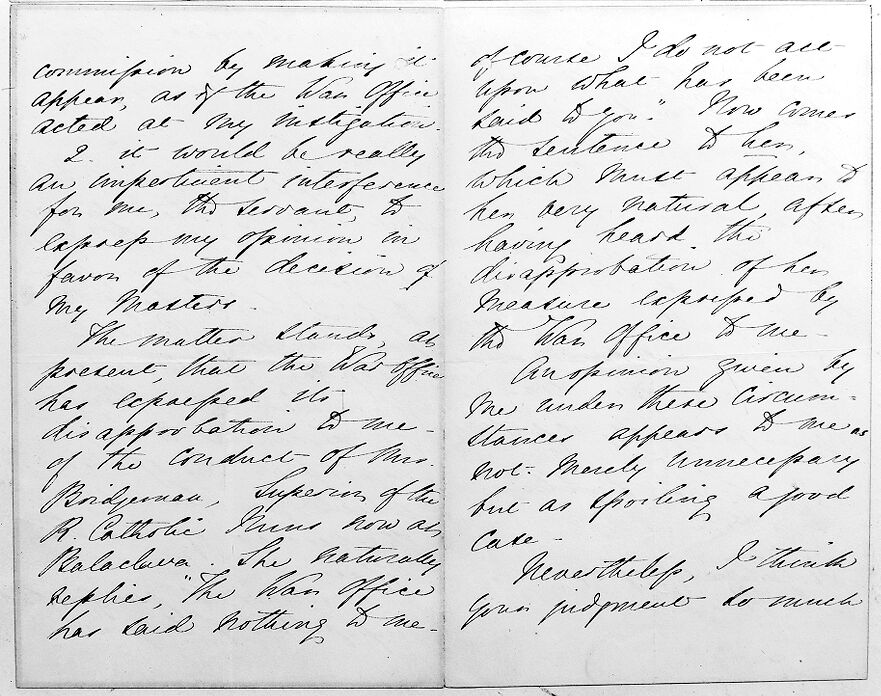 commission by making it
appear, as if the War Office
acted at my instigation.
2. it would be really
an impertinent interference
for me, the servant, to
express my opinion in
favor of the decision of
my Masters.
The matter stands, at
present, that the War Office
has expressed its
disapprobation to me -
of the conduct of Mrs.
Bridgeman, Superior of the
R. Catholic Nuns now at
Balaclava. She naturally
replies, "The War Office
has said nothing to me -
of course I do not act
upon what has been
said to you." Now comes
the sentence to her,
which must appear to
her very natural, after
having heard the
disapprobation of her
measure expressed by
the War Office to me -
An opinion given by
me under these circum=
stances appears to me as
not merely unnecessary
but as spoiling a good
case -
Nevertheless, I think
your judgment so much